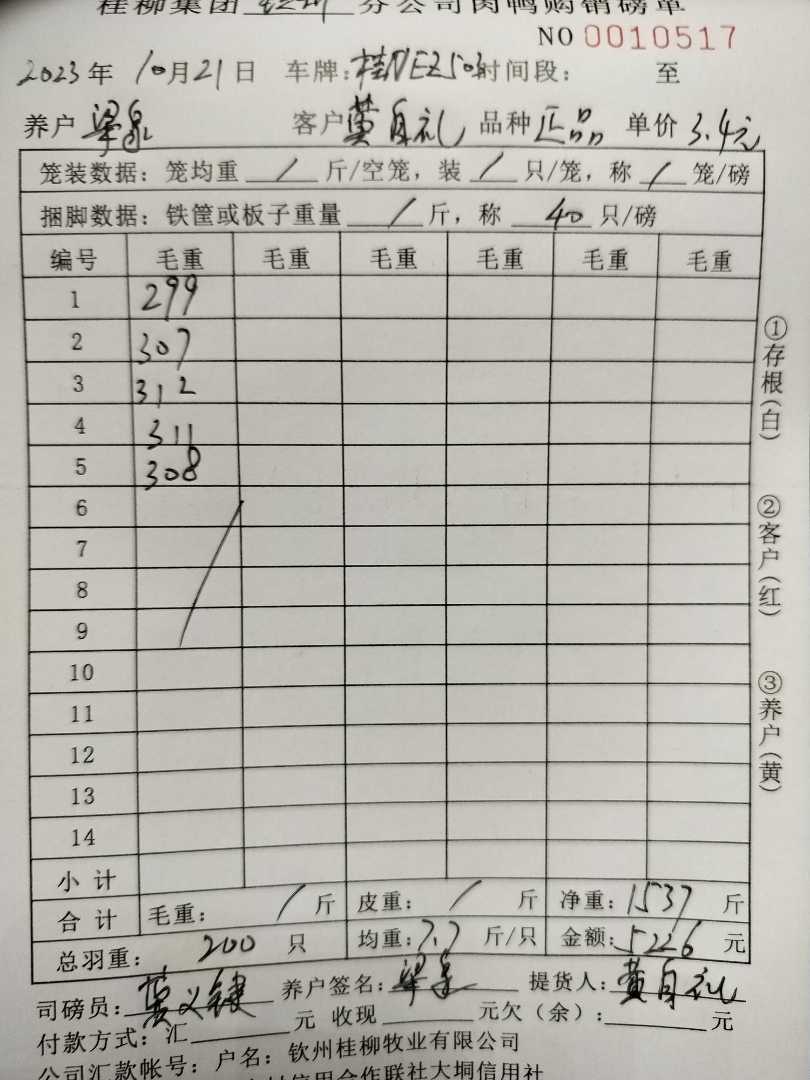 桂柳集团 钦州 分公司肉鸭购销磅单
NO 0010517
2023年 10月21日 车牌:桂NEZ503 时间段: 至
养户 梁 客户 黄自礼 品种 正品 单价 3.4元
笼装数据:笼均重 / 斤/空笼,装 / 只/笼,称 / 笼/磅
捆脚数据:铁筐或板子重量 / 斤,称 40 只/磅
编号 毛重 毛重 毛重 毛重 毛重 毛重
1 299
2 307
3 312
4 311
5 308
6
7
8
9
10
11
12
13
14
小计
合计 毛重: / 斤 皮重: / 斤 净重: 1537 斤
总羽重: 200 只 均重: 7.7 斤/只 金额: 5226 元
司磅员: 黄义键 养户签名: 梁 提货人: 黄自礼
付款方式:汇 元 收现 元欠(余): 元
公司汇款帐号:户名:钦州桂柳牧业有限公司
信用合作联社大垌信用社
①存根(白)
②客户(红)
③养户(黄)